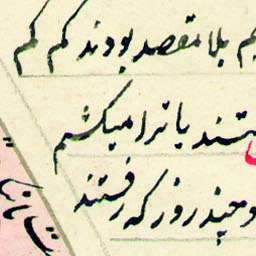 هم بلا مقصد بودند کم کم
ستند یا ترا میکشم
و چند روز که رفتند